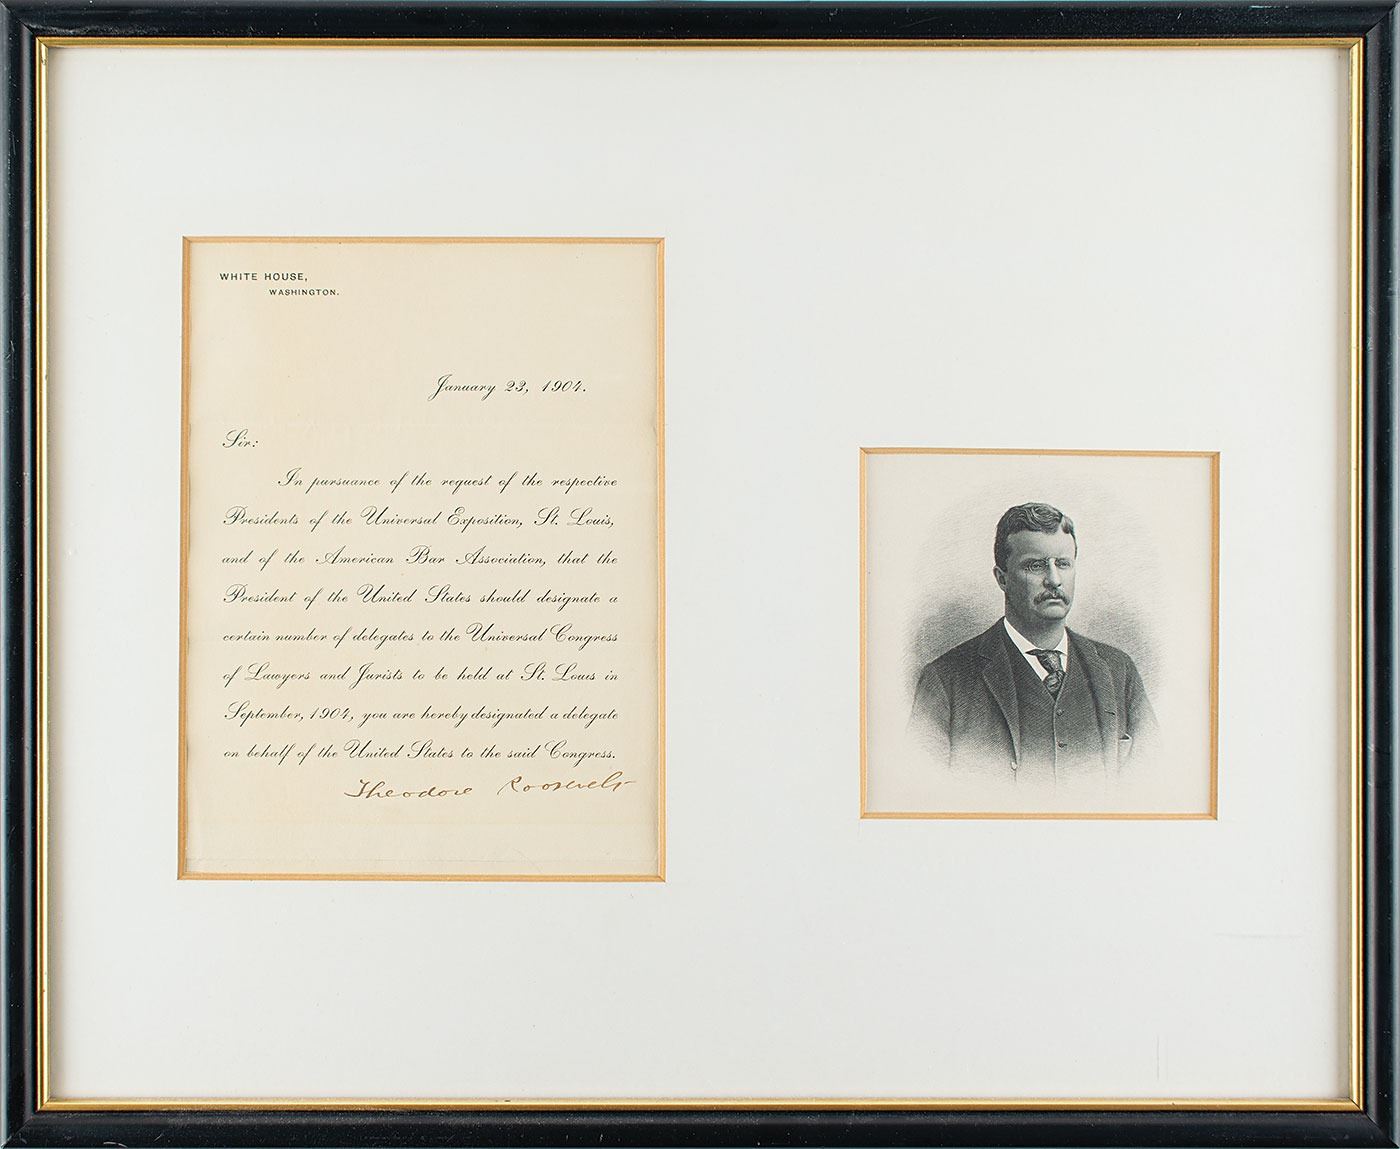 WHITE HOUSE,
WASHINGTON.
January 23, 1904.
Sir:
In pursuance of the request of the respective
Presidents of the Universal Exposition, St. Louis,
and of the American Bar Association, that the
President of the United States should designate a
certain number of delegates to the Universal Congress
of Lawyers and Jurists to be held at St. Louis in
September, 1904, you are hereby designated a delegate
on behalf of the United States to the said Congress.
Theodore Roosevelt